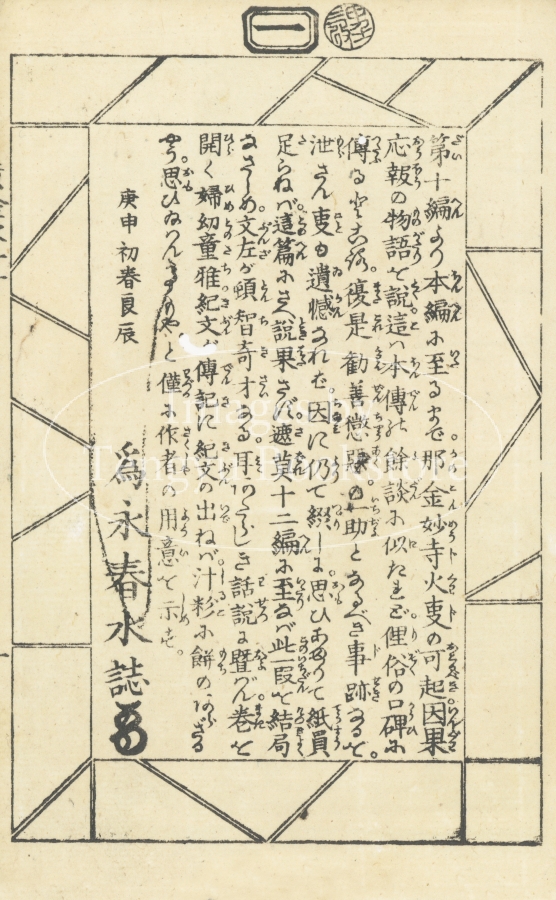 一
第十編より本編に至るまで。那金妙寺火叓の可起因果
応報の物語を説。這は本傳の餘談に似たれど俚俗の口碑に
傳る
。復是勧善懲悪の一助ともなるべき事跡なるを。
泄さん叓も遺憾なれば。因に仍て綴しに。思ひあまりて紙員
足らねば。這篇にさへ説果さず。遮莫十二編に至らば此一叚を結局
なさしめ文左が頓智奇才ある。耳あたらしき話説に曁ばん。巻を
開く婦幼童雅紀文が傳記に紀文の出ねば汁粉に餅のあらざる
思ひ
と僅に作者の用意を示す。
庚申初春良辰
為永春水誌
Tangled